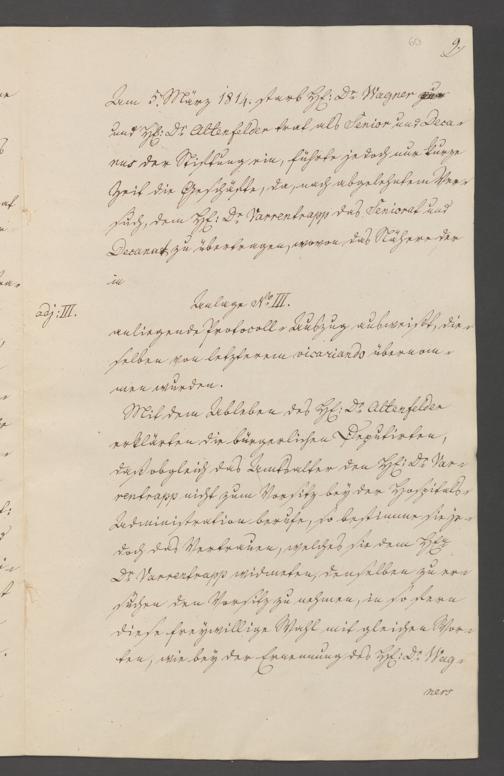 60
9.
Am 5. März 1814. starb H: Dr. Wagner
und H: Dr. Altenfelder trat als Senior und Deca-
nus der Stiftung ein, führte jedoch nur kurze
Zeit die Geschäfte, da, nach abgelehntem Ver-
such, dem H: Dr. Varrentrapp das Seniorat und
Decanat, zu übertragen, wovon das Nähere der
in
Anlage No. III.
adj: III.
anliegende Protocoll-Auszug ausweißt, die-
selben von letzterem vicariando übernom-
men wurden.
Mit dem Ableben des H: Dr. Altenfelder
erklärten die bürgerlichen Deputirten,
daß obgleich das Amtsalter den H: Dr. Var-
rentrapp nicht zum Vorsitz bey der Hospitals-
Administration berufe, so bestimme sie je-
doch das Vertrauen, welches sie dem
Dr. Varrentrapp widmeten, denselben zu er-
suchen den Vorsitz zu nehmen, in so fern
diese freywillige Wahl mit gleichen Wor-
ten, wie bey der Ernennung des H: Dr. Wag-
ners